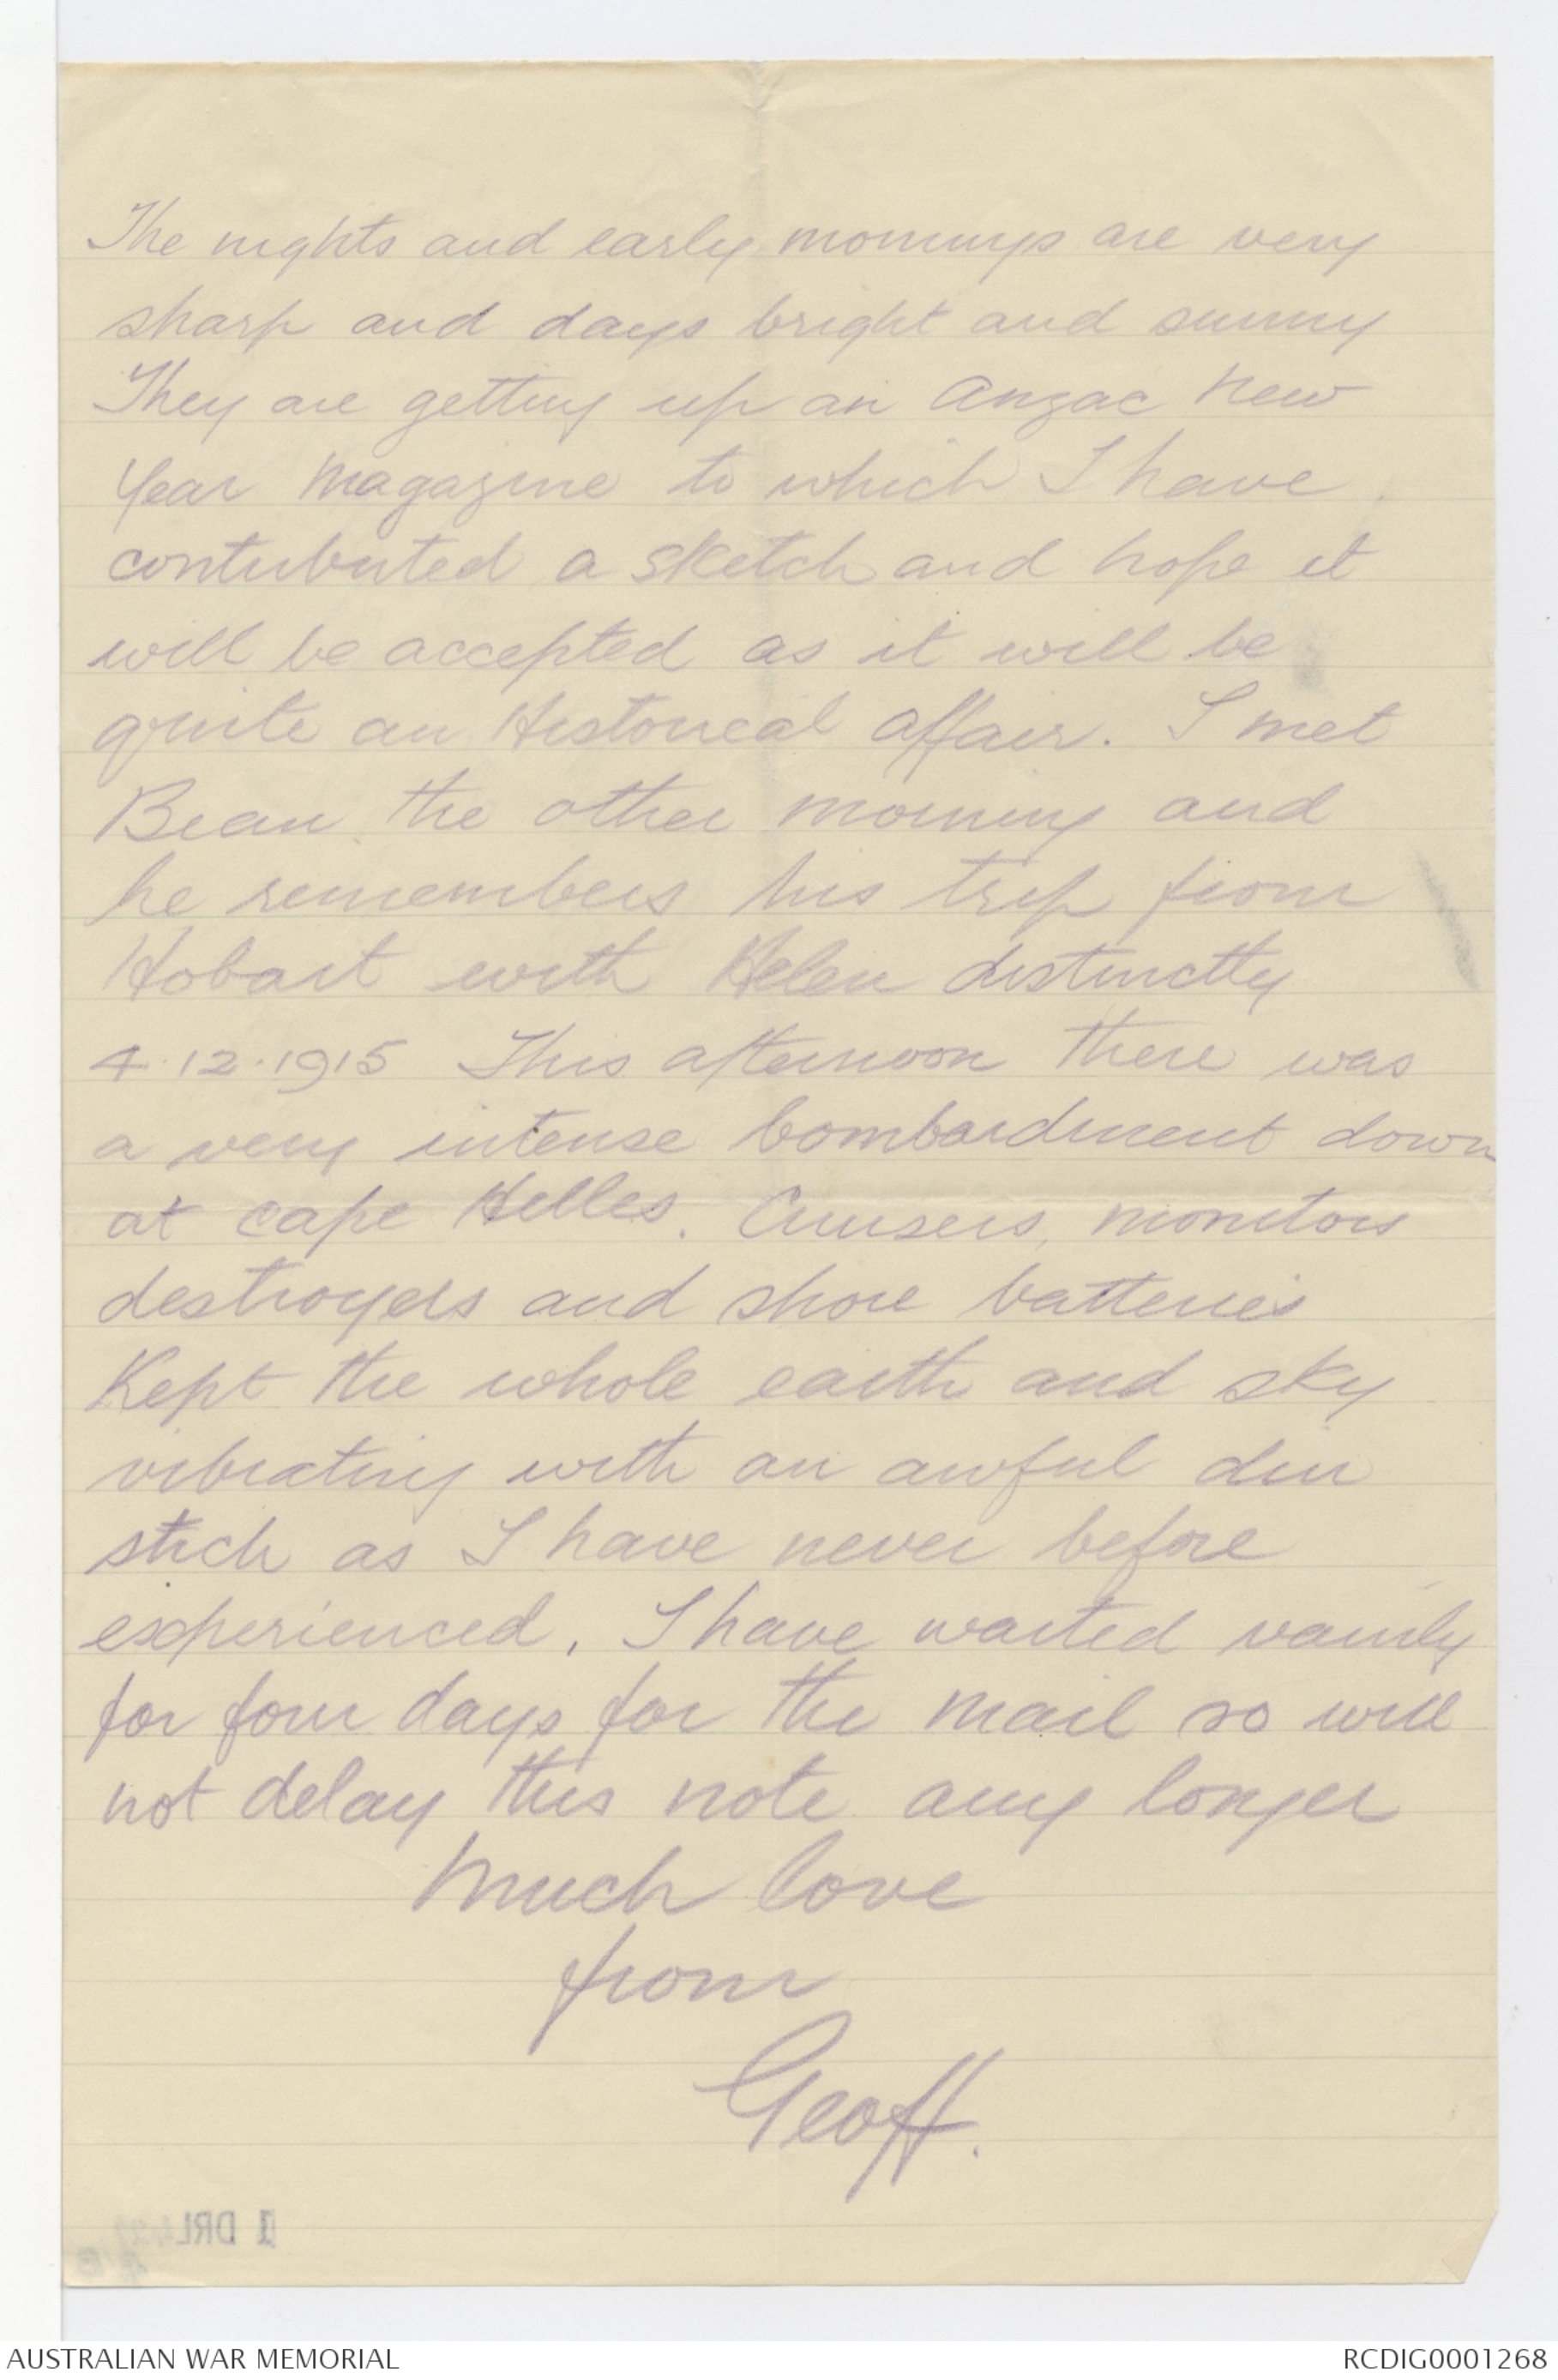 The nights and early mornings are very
sharp and days bright and sunny
They are getting up an Anzac New
Year Magazine to which I have
contributed a sketch and hope it
will be accepted as it will be
quite an Historical affair. I met
Bean the other morning and
he remembers his trip from
Hobart with Helen distinctly
4.12.1915 This afternoon there was
a very intense bombardment down
at Cape Helles. Cruisers, monitors
destroyers and shore batteries
Kept the whole earth and sky
vibrating with an awful din
such as I have never before
experienced. I have waited vainly
for four days for the mail so will
not delay this note any longer
Much love
from
Geoff.
1 DRL
AUSTRALIAN WAR MEMORIAL
RCDIG0001268